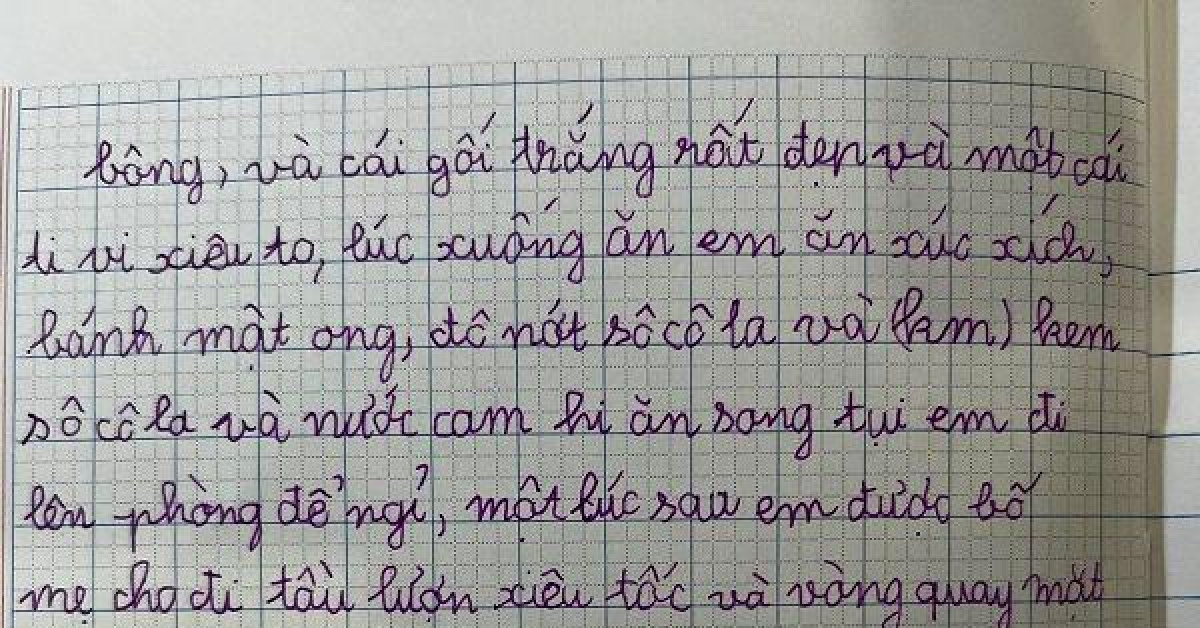 bông, và cái gối trắng rất đẹp và một cái
ti vi xiêu to, lúc xuống ăn em ăn xúc xích,
bánh mật ong, đô nót sô cô la và (kem) kem
sô cô la và nước cam hi ăn song tụi em đi
lên phòng để ngỉ, một lúc sau em được bố
mẹ cho đi tầu lượn xiêu tốc và vòng quay mặt